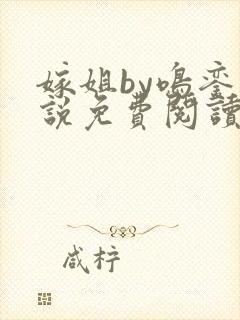 嫁姐by鳴銮
說免費閱讀
咸柠